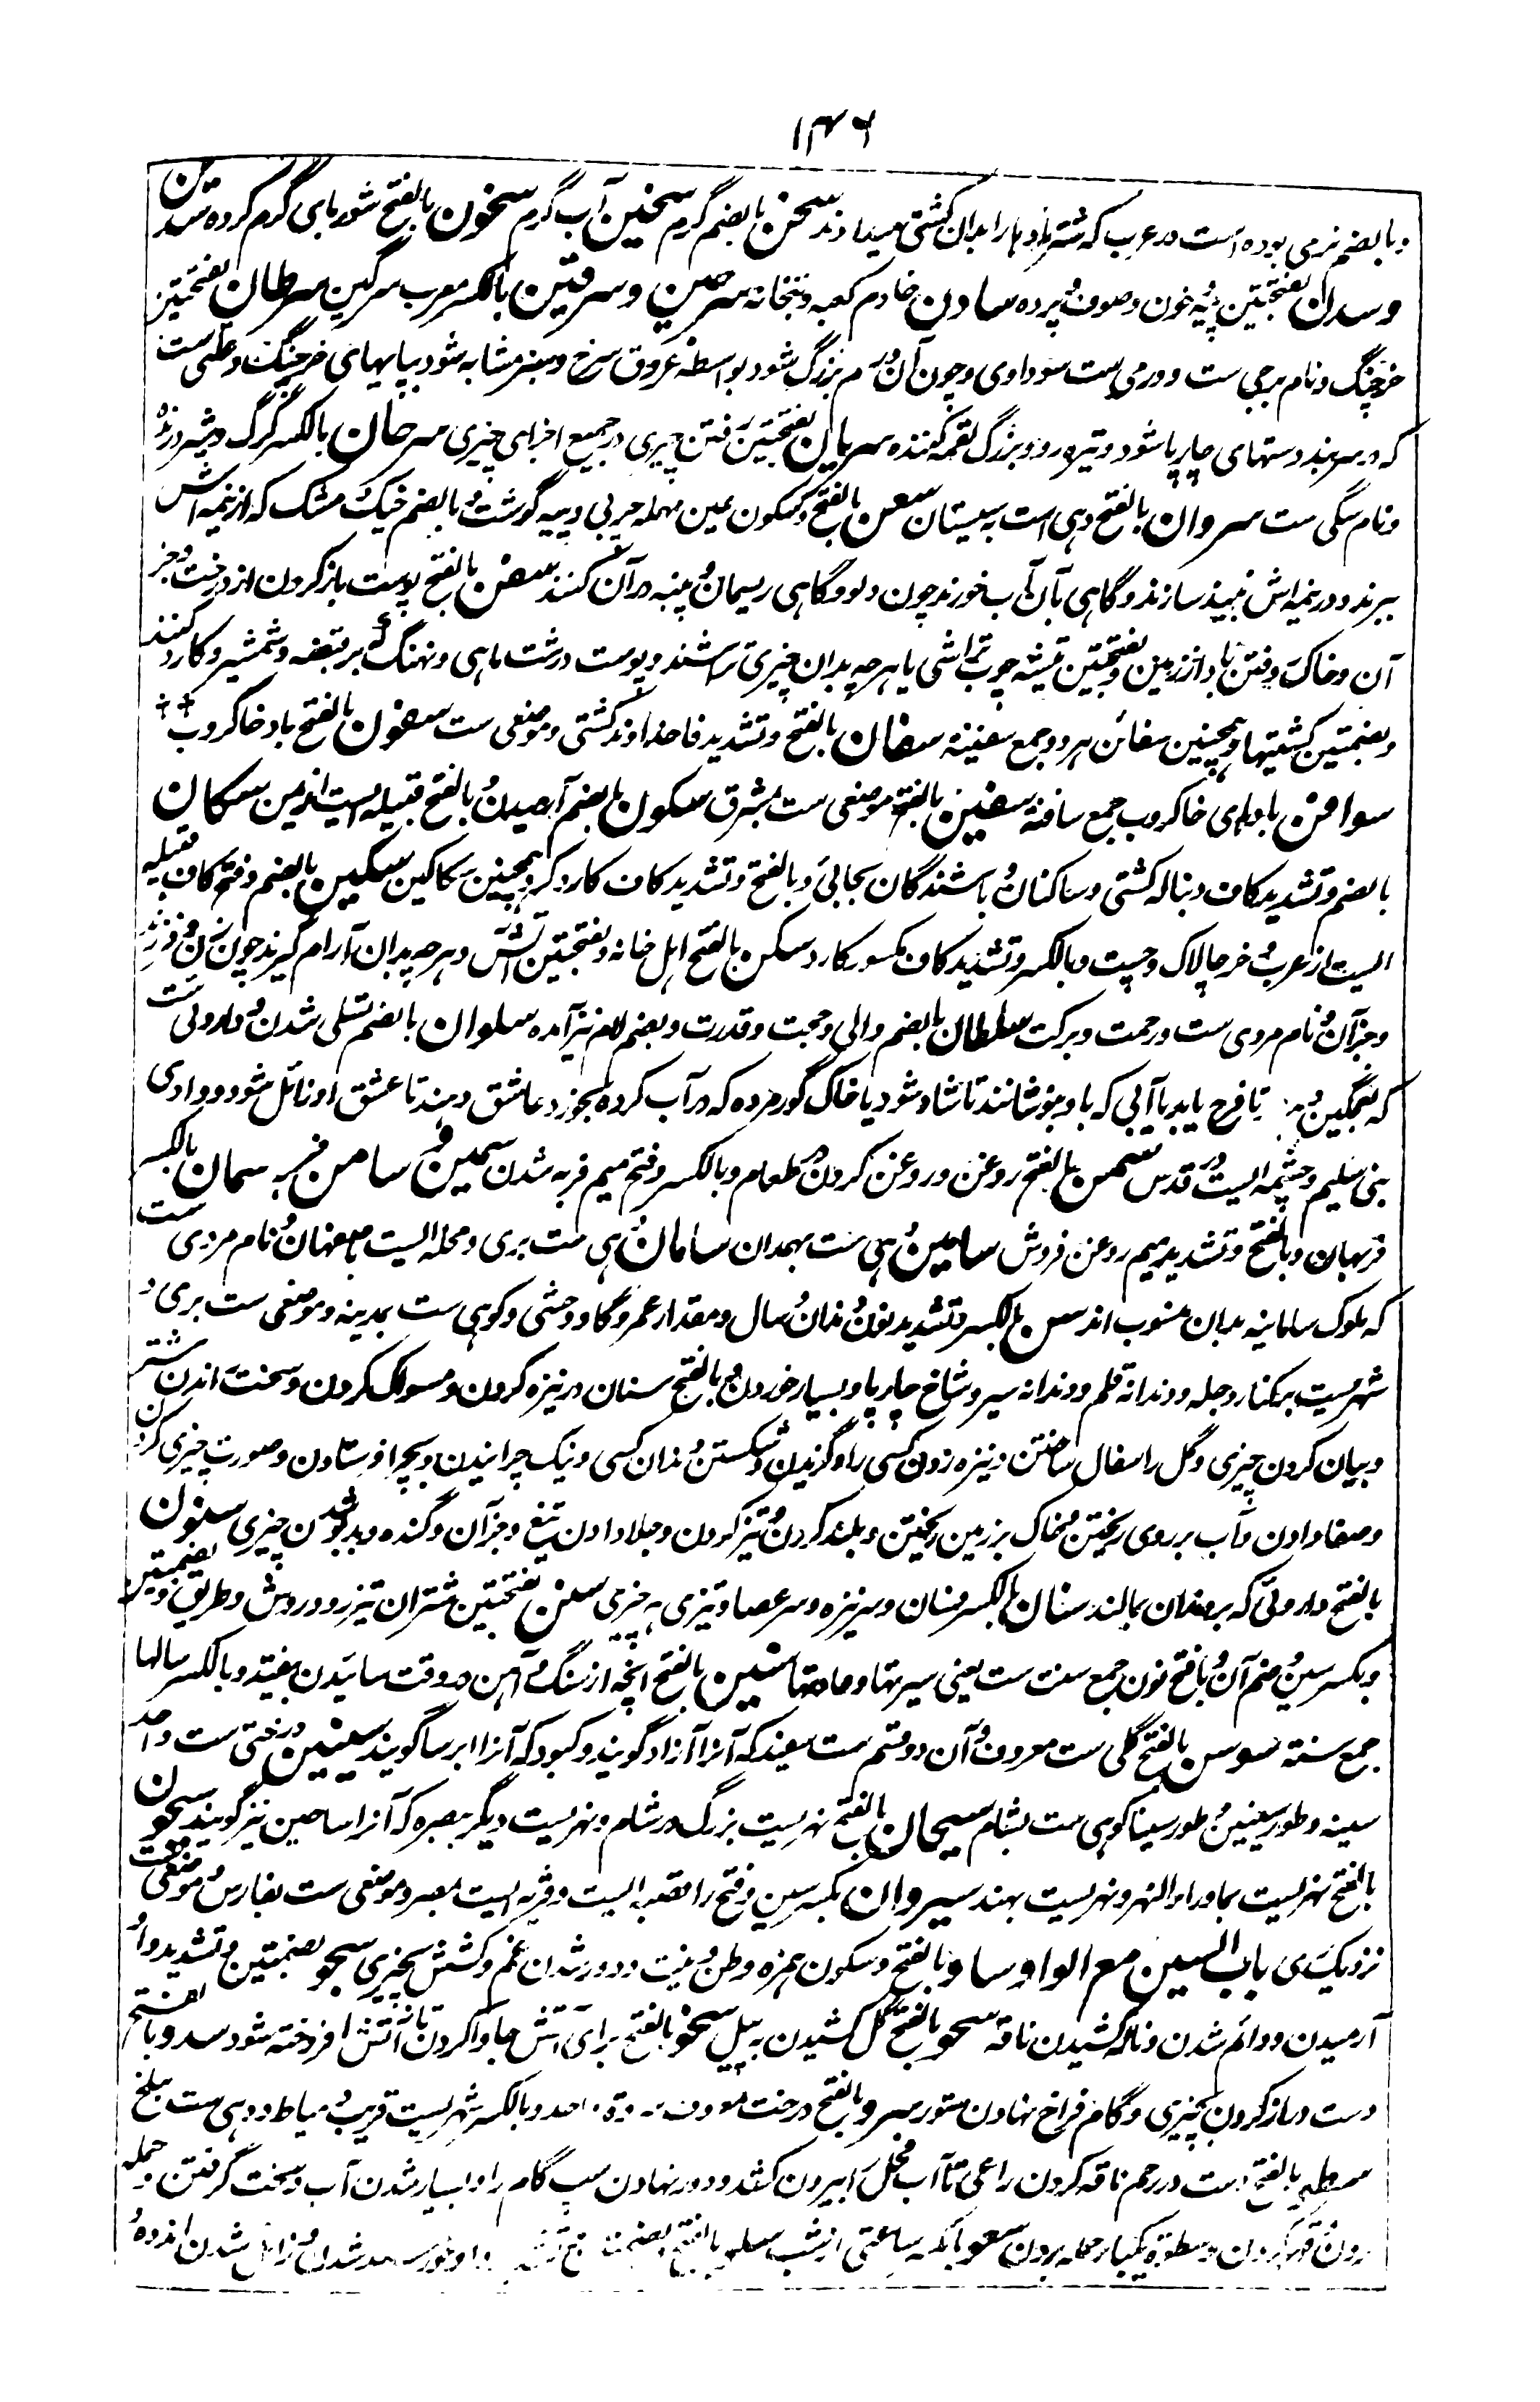 ۱۳۴۶
و بالضم نرمی بوده است در عرب که شتر مادها را بدان کشتی میدادند سخن بالضم گرم سخین آب گرم سخون بالفتح شوربای گرم کرده سدن
و سدان بفتحتین پیه خون و صوف و پرده سادن خادم کعبه و بتخانه سرجین و سرقین بالکسر معرب سرگین سرطان بفتحتین
خرچنگ و نام برجی ست و ورمی ست سوداوی و چون آن ورم بزرگ شود بواسطه عروق سرخ و سبز مشابه شود بپایهای خرچنگ و علتی ست
که در سر بند دستهای چارپا شود و تیزرو و بزرگ لقمه کننده سریان بفتحتین رفتن چیزی در جمیع اجزای چیزی سرحان بالکسر گرگ و شیر درنده
و نام سگی ست سروان بالفتح دهی است به سیستان سعن بالفتح و سکون عین مهمله چربی و پیه گوشت و بالضم خیک مشک که از نیمه اش
ببرند و در نیمه اش نبیذ سازند و گاهی بآن آب خورند چون دلو و گاهی ریسمان و پنبه در آن کنند سفن بالفتح پوست باز کردن از درخت و جز
آن و خاک رفتن باد از زمین و بفتحتین تیشه چوب تراشی یا هر چه بدان چیزی تراشند و پوست درشت ماهی و نهنگ که بر قبضه و شمشیر و کارد کنند
و بضمتین کشتیها و همچنین سفائن هر دو جمع سفینه سفان بالفتح و تشدید فا خداوند کشتی و موضعی ست سفون بالفتح باد خاکروب
سوافن بادهای خاکروب جمع سافنه سفین بالفتح موضعی ست بمشرق سکون بالضم آرمیدن و بالفتح قبیله ایست از یمن سکان
بالضم و تشدید کاف دنباله کشتی و ساکنان و باشندگان بجائی و بالفتح و تشدید کاف کاردگر و همچنین سکاکین سکین بالضم و فتح کاف قبیله
ایست از عرب و خر چالاک و چست و بالکسر و تشدید کاف مکسور کارد سکن بالفتح اهل خانه و بفتحتین آتش و هر چه بدان آرام گیرند چون زن و فرزند
و جز آن و نام مردی ست و رحمت و برکت سلطان بالضم والی و حجت و قدرت و بضم لام نیز آمده سلوان بالضم تسلی شدن و داروئی ست
که بغمگین دهند تا فرح یابد یا آبی که باو بنوشانند تا شاد شود یا خاک گور مرده که در آب کرده بخورد عاشق دهند تا عشق او زائل شود و وادی
بنی سلیم و چشمه ایست در قدس سمن بالفتح روغن و روغن کردن در طعام و بالکسر و فتح میم فربه شدن سمین و سامن فربه سمان بالکسر
فربهان و بالفتح و تشدید میم روغن فروش سامین دهی ست بهمدان سامان دهی ست بری و محله ایست باصفهان و نام مردی ست
که ملوک سامانیه بدان منسوب اند سن بالکسر و تشدید نون دندان و سال و مقدار عمر و گاو وحشی و کوهی ست بمدینه و موضعی ست بری و
شهریست برکنار دجله و دندانه قلم و دندانه سیر و شاخ چارپا و بسیار خوردن و بالفتح سنان در نیزه کردن و مسواک کردن و سخت راندن شتر
و بیان کردن چیزی و گل را سفال ساختن و نیزه زدن کسی را و گزیدن و شکستن دندان کسی و نیک چرانیدن و بچرا فرستادن و صورت چیزی کردن
و صفا دادن و آب بر روی ریختن و خاک بر زمین ریختن و بلند کردن و تیز کردن و جلا دادن تیغ و جز آن و گنده و بدبو شدن چیزی سنون
بالفتح داروئی که بر دندان بمالند سنان بالکسر فسان و سر نیزه و سر عصا و تیزی هر چیزی سنن بفتحتین شتران تیزرو و روش و طریق و بضمتین
و بکسر سین و ضم آن و با فتح نون جمع سنت ست یعنی سیرتها و عادتها سنین بالفتح انچه از سنگ و آهن در وقت سائیدن بیفتد و بالکسر سالها
جمع سنة سوسن بالفتح گلی ست معروف و آن دو قسم ست سفید که آنرا آزاد گویند و کبود که آنرا ایرسا گویند سینین درختی ست واحد
سینه و طور سینین و طور سینا کوهی ست بشام سیحان بالفتح نهریست بزرگ در شام و نهریست دیگر ببصره که آنرا ساحین نیز گویند سیحون
بالفتح نهریست بماوراء النهر و نهریست بهند سیروان بکسر سین و فتح را قصبه ایست و قریه ایست بمصر و موضعی ست بفارس و موضعی ست
نزدیک ری باب السین مع الواو ساو بالفتح و سکون همزه وطن و نیت و دور شدن غم و کشش بچیزی سجو بضمتین و تشدید واو
آرمیدن و دائم شدن و ناله کشیدن ناقه سحو بالفتح گل کشیدن به بیل سخو بالفتح برای آتش جا وا کردن تا آتش افروخته شود سدو بالفتح
دست دراز کردن بچیزی و گام فراخ نهادن ستور سرو بالفتح درخت معروف واحد و بالکسر شهریست قریب دمیاط و دهی ست ببلخ
سطو بالفتح دست در رحم ناقه کردن راعی تا آب فحل را بیرون کشد و دور نهادن اسپ گام را و بسیار شدن آب و سخت گرفتن و حمله
بردن و قهر کردن و سطوة یکبار حمله بردن سعو بالکسر ساعتی از شب سلو بالفتح شدن اندوه